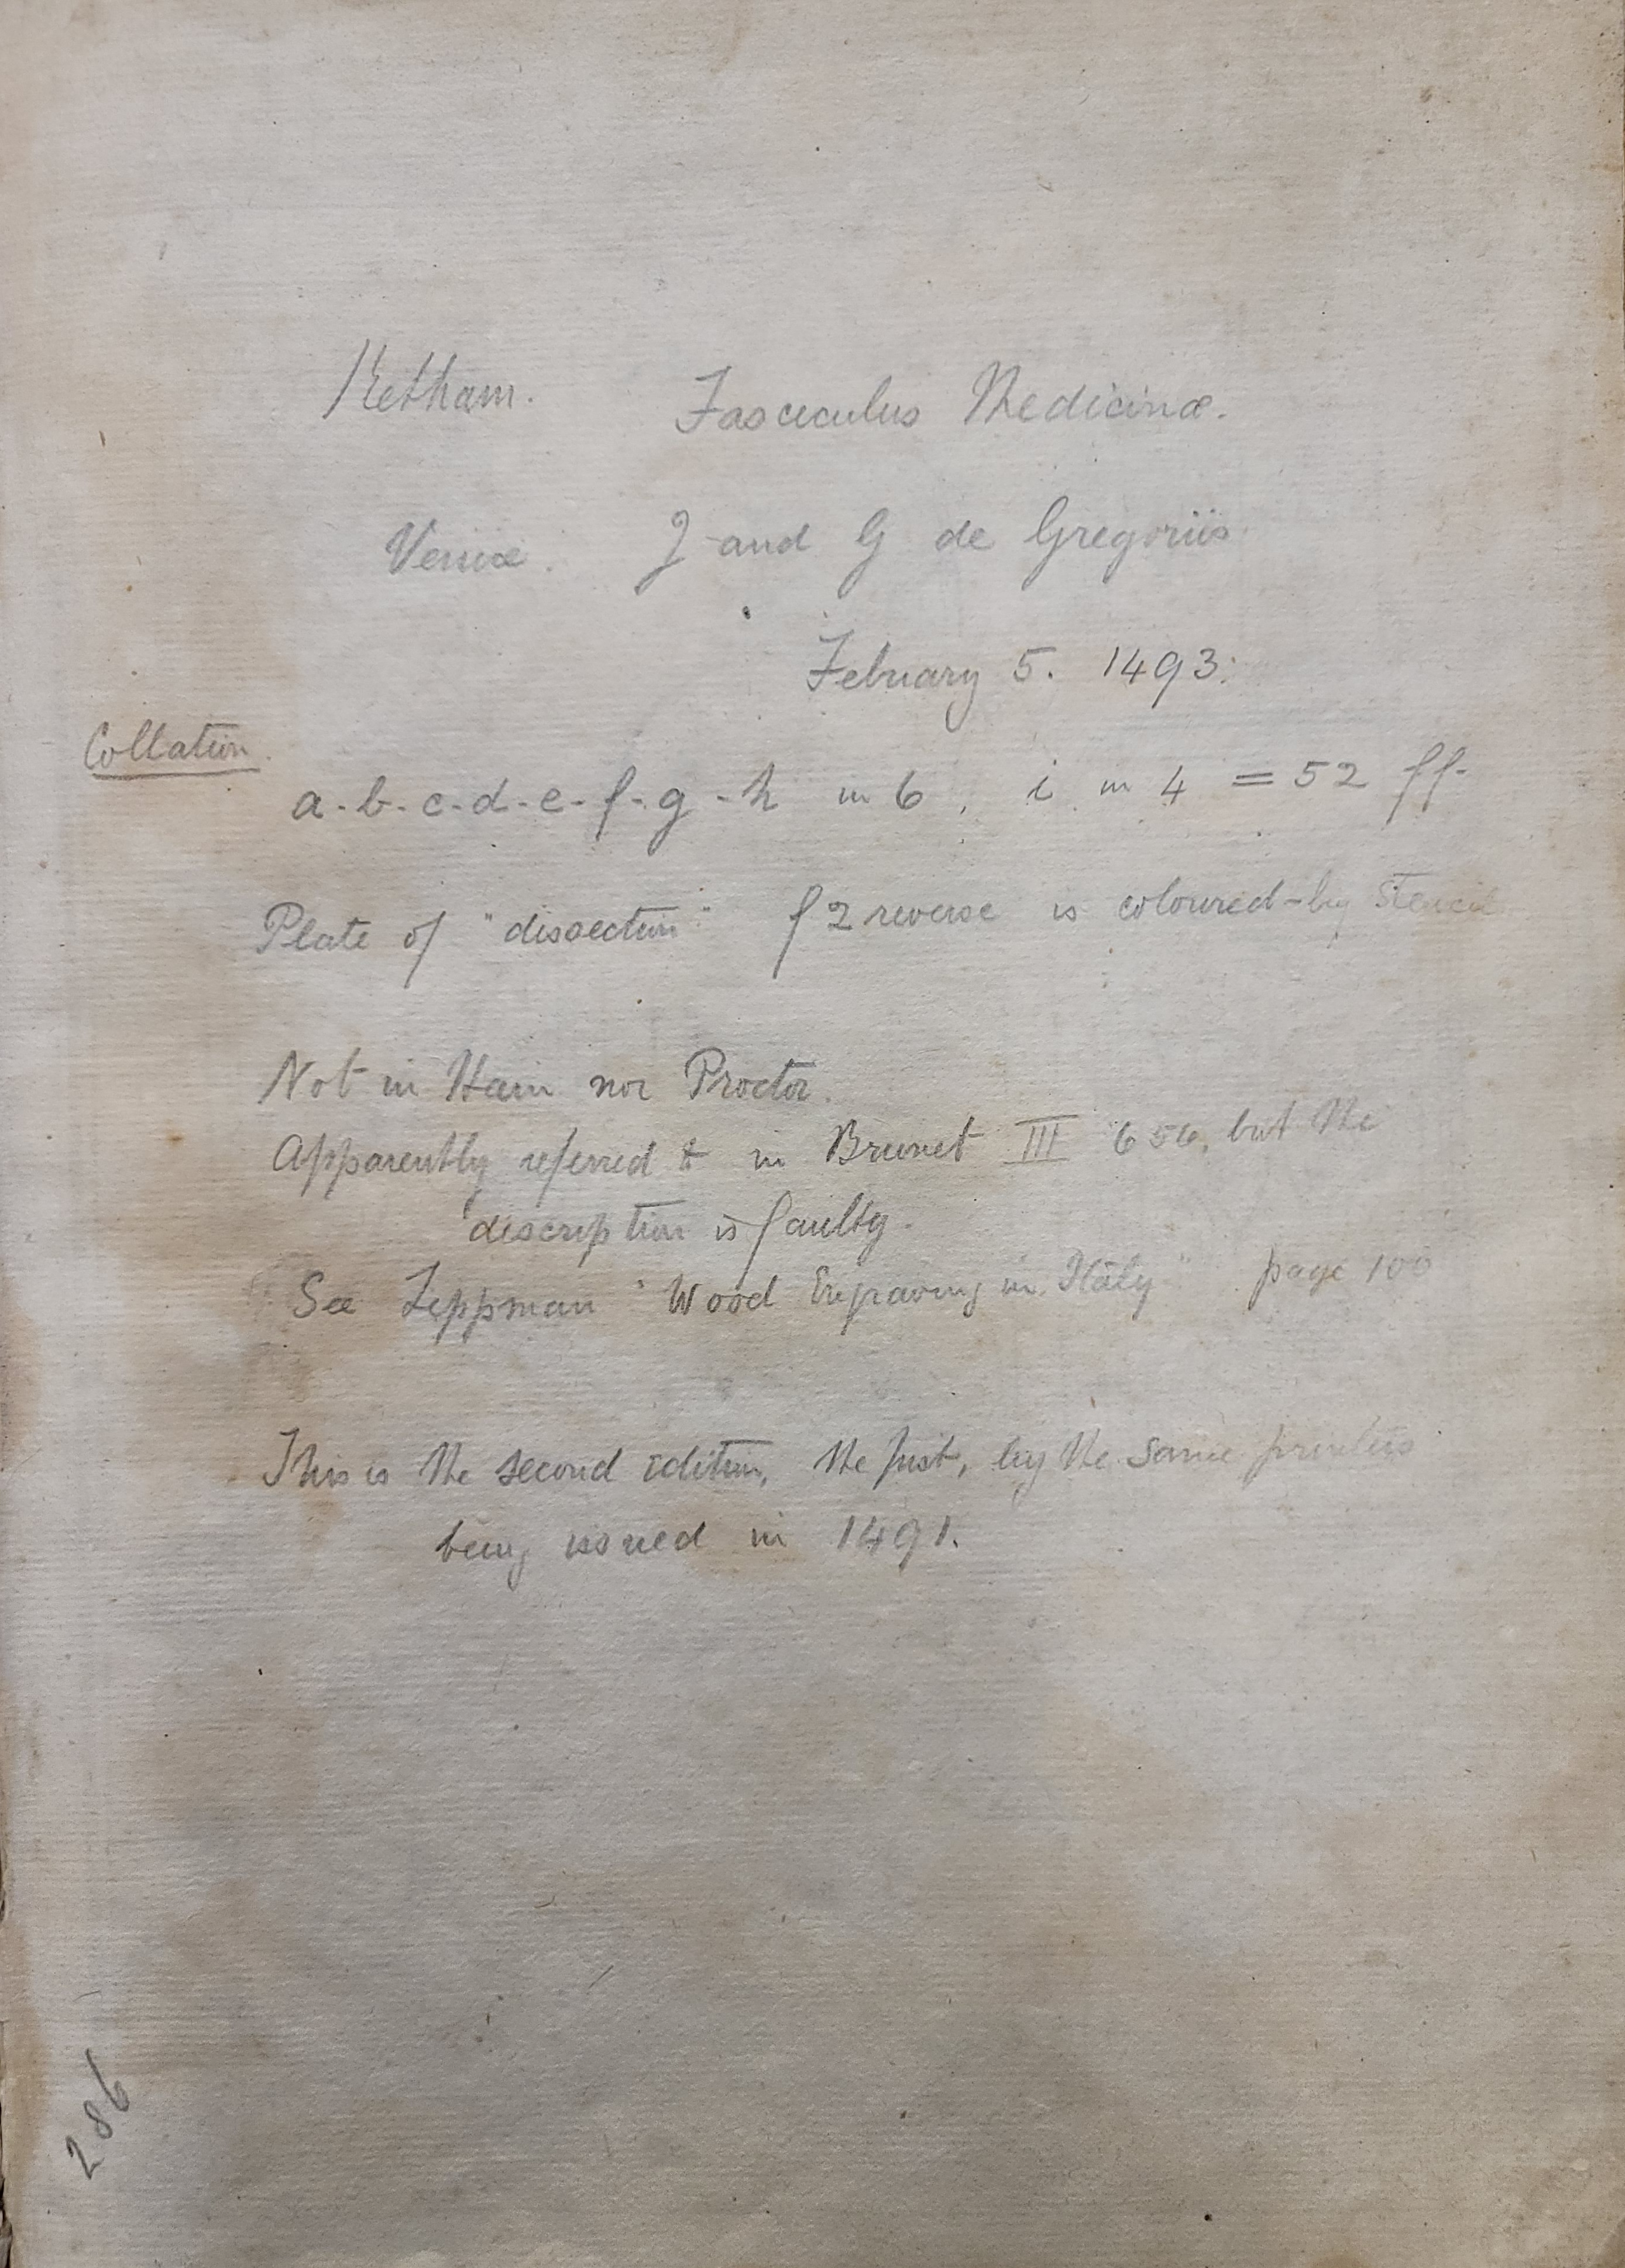 Ketham. Fasciculus Medicinæ.
Venice. J and G de Gregoriis
Febuary 5. 1493.
Collation.
a-b-c-d-e-f-g-h in 6, i in 4 = 52 ff.
Plate of "dissection" f 2 reverse is coloured by stencil
Not in Hain nor Proctor.
Apparently referred to in Brunet III 656, but the
description is faulty.
See Lippman "Wood Engraving in Italy" page 100
This is the second edition, the first, by the same printers
being issued in 1491.
286